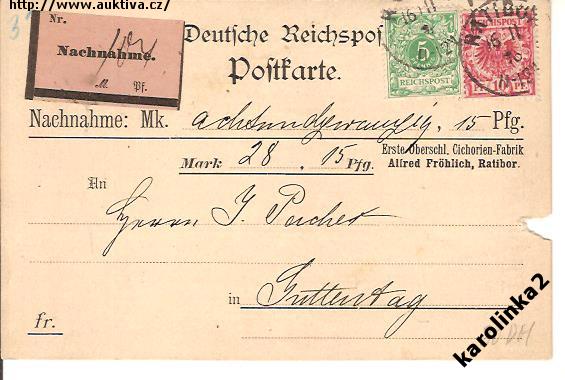 http://www.auktiva.cz/
Nr.
Nachnahme.
M. Pf.
Deutsche Reichspost
Postkarte.
5
REICHSPOST
REICHSPOST
RATIBOR
16 11
Nachnahme: Mk. achtundzwanzig. 15 Pfg.
Mark 28 . 15 Pfg.
Erste Oberschl. Cichorien-Fabrik
Alfred Fröhlich, Ratibor.
An
Herrn J. Pacher
in Guttentag
fr.
karolinka2